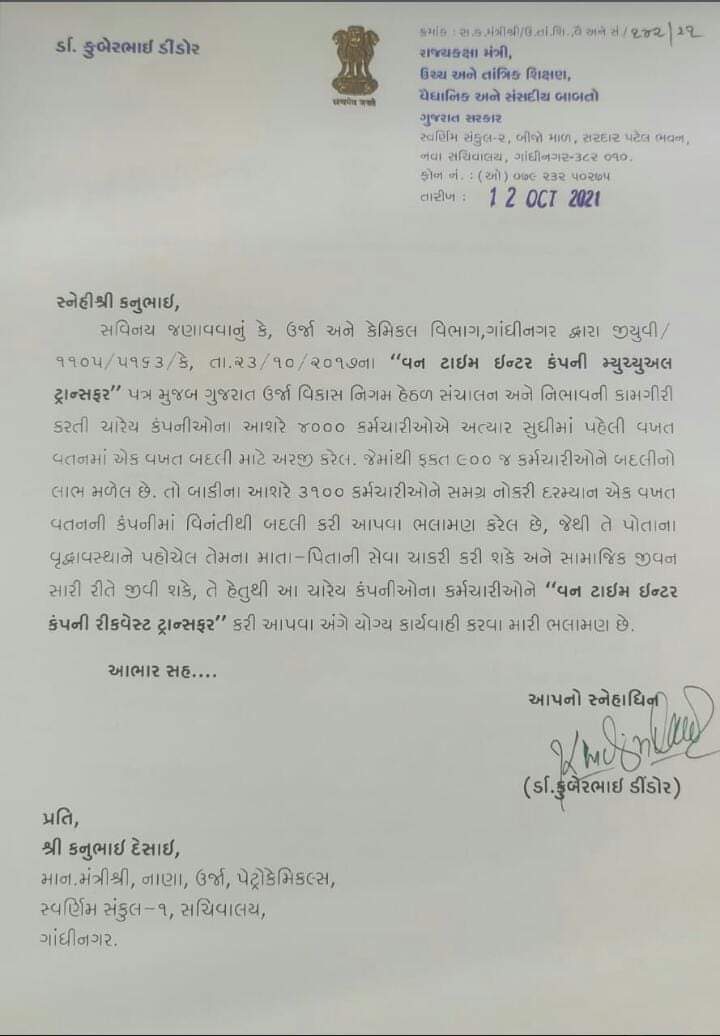 ડૉ. કુબેરભાઈ ડીંડોર
सत्यमेव जयते
ક્રમાંક : રા.ક.મંત્રીશ્રી/ઉ.તાં.શિ.,વૈ અને સં/ ૨૪૨/૨૧
રાજ્યકક્ષા મંત્રી,
ઉચ્ચ અને તાંત્રિક શિક્ષણ,
વૈધાનિક અને સંસદીય બાબતો
ગુજરાત સરકાર
સ્વર્ણિમ સંકુલ-૨, બીજો માળ, સરદાર પટેલ ભવન,
નવા સચિવાલય, ગાંધીનગર-૩૮૨ ૦૧૦.
ફોન નં. : (ઓ) ૦૭૯ ૨૩૨ ૫૦૨૭૫
તારીખ : 12 OCT 2021
સ્નેહીશ્રી કનુભાઈ,
સવિનય જણાવવાનું કે, ઉર્જા અને કેમિકલ વિભાગ,ગાંધીનગર દ્વારા જીયુવી/
૧૧૦૫/૫૧૬૩/કે, તા.૨૩/૧૦/૨૦૧૭ના “વન ટાઈમ ઈન્ટર કંપની મ્યુચ્યુઅલ
ટ્રાન્સફર” પત્ર મુજબ ગુજરાત ઉર્જા વિકાસ નિગમ હેઠળ સંચાલન અને નિભાવની કામગીરી
કરતી ચારેય કંપનીઓના આશરે ૪૦૦૦ કર્મચારીઓએ અત્યાર સુધીમાં પહેલી વખત
વતનમાં એક વખત બદલી માટે અરજી કરેલ. જેમાંથી ફકત ૯૦૦ જ કર્મચારીઓને બદલીનો
લાભ મળેલ છે. તો બાકીના આશરે ૩૧૦૦ કર્મચારીઓને સમગ્ર નોકરી દરમ્યાન એક વખત
વતનની કંપનીમાં વિનંતીથી બદલી કરી આપવા ભલામણ કરેલ છે, જેથી તે પોતાના
વૃદ્ધાવસ્થાને પહોચેલ તેમના માતા-પિતાની સેવા ચાકરી કરી શકે અને સામાજિક જીવન
સારી રીતે જીવી શકે, તે હેતુથી આ ચારેય કંપનીઓના કર્મચારીઓને “વન ટાઈમ ઈન્ટર
કંપની રીકવેસ્ટ ટ્રાન્સફર” કરી આપવા અંગે યોગ્ય કાર્યવાહી કરવા મારી ભલામણ છે.
આભાર સહ....
આપનો સ્નેહાધિન
(ડૉ.કુબેરભાઈ ડીંડોર)
પ્રતિ,
શ્રી કનુભાઈ દેસાઈ,
માન.મંત્રીશ્રી, નાણા, ઉર્જા, પેટ્રોકેમિકલ્સ,
સ્વર્ણિમ સંકુલ-૧, સચિવાલય,
ગાંધીનગર.